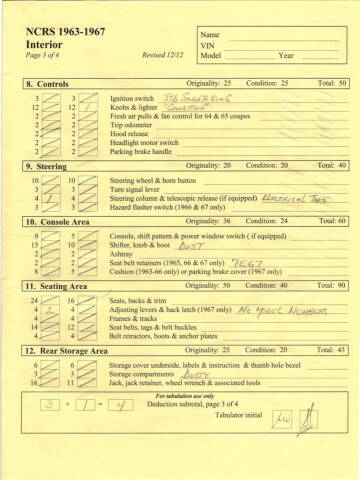 NCRS 1963-1967
Interior
Page 3 of 4 Revised 12/12
Name
VIN
Model Year
8. Controls Originality: 25 Condition: 25 Total: 50
3 3 Ignition switch
12 12 1 Knobs & lighter "Condition"
2 2 Fresh air pulls & fan control for 64 & 65 coupes
2 2 Trip odometer
2 2 Hood release
2 2 Headlight motor switch
2 2 Parking brake handle
9. Steering Originality: 20 Condition: 20 Total: 40
10 10 Steering wheel & horn button
3 3 Turn signal lever
4 1 4 Steering column & telescopic release (if equipped) Electrical Tape
3 3 Hazard flasher switch (1966 & 67 only)
10. Console Area Originality: 36 Condition: 24 Total: 60
9 5 Console, shift pattern & power window switch ( if equipped)
15 10 Shifter, knob & boot Dust
2 2 Ashtray
2 2 Seat belt retainers (1965, 66 & 67 only)
8 5 Cushion (1963-66 only) or parking brake cover (1967 only)
11. Seating Area Originality: 50 Condition: 40 Total: 90
24 16 Seats, backs & trim
4 2 4 Adjusting levers & back latch (1967 only) No Model Numbers
4 4 Frames & tracks
14 12 Seat belts, tags & belt buckles
4 4 Belt retractors, boots & anchor plates
12. Rear Storage Area Originality: 25 Condition: 20 Total: 45
6 6 Storage cover underside, labels & instruction & thumb hole bezel
3 3 Storage compartments Dusty
16 11 Jack, jack retainer, wheel wrench & associated tools
For tabulation use only
3 + 1 = 4 Deduction subtotal, page 3 of 4
Tabulator initial